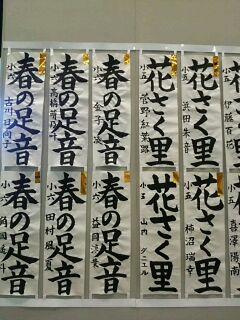 花さく里
小五
伊藤百花
花さく里
小五
浜田朱音
花さく里
小五
菅野紅芳
春の足音
小六
金子凌
春の足音
小六
高橋
春の足音
小六
古川日向子
小五
喜澤陽南
花さく里
小五
柿沼瑞幸
花さく里
小五
山内ダニエル
春の足音
小六
益田
春の足音
小六
田村風貢
春の足音
小六
角田